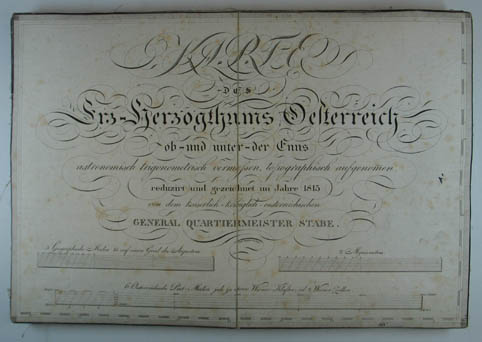 KARTE
DES
Erz-Herzogthums Oesterreich
ob-und unter-der Enns
astronomisch trigonometrisch vermessen, topographisch aufgenomen
reduzirt und gezeichnet im Jahre 1813
von dem kaiserlich-königlich-österreichischen
GENERAL QUARTIERMEISTER STABE.
Geographische Meilen 15 auf einen Grad des Aequators
Oesterreichische Post-Meilen jede zu 4000 Wiener Klafter